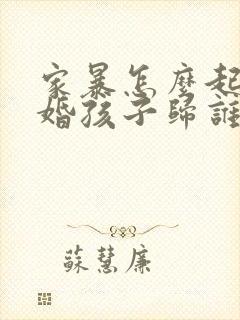 家暴怎麼起
婚孩子歸誰
蘇慧廉